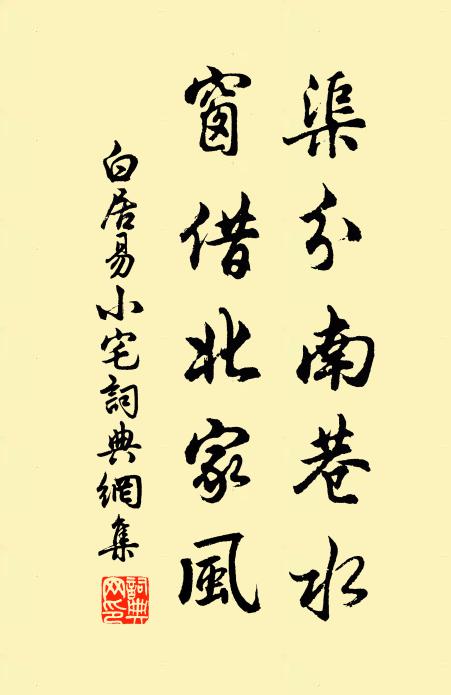 渠分南巷水
窗借北家風
白居易小宅詞典網集
詞典網印